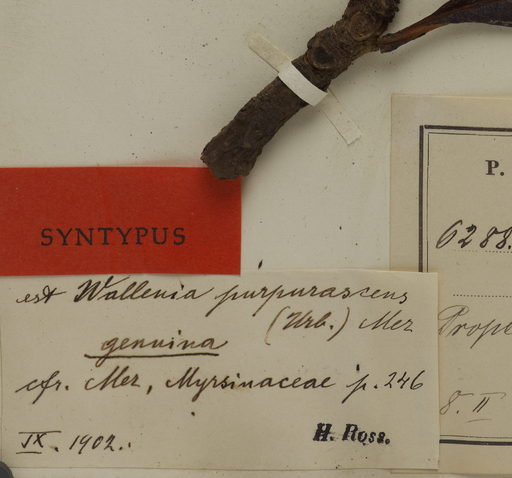 SYNTYPUS
est Wallenia purpurascens
(Urb.) Mez
genuina
cfr. Mez, Myrsinaceae p. 246
IX. 1902.
H. Ross.
P.
6288.
Prope
8. II